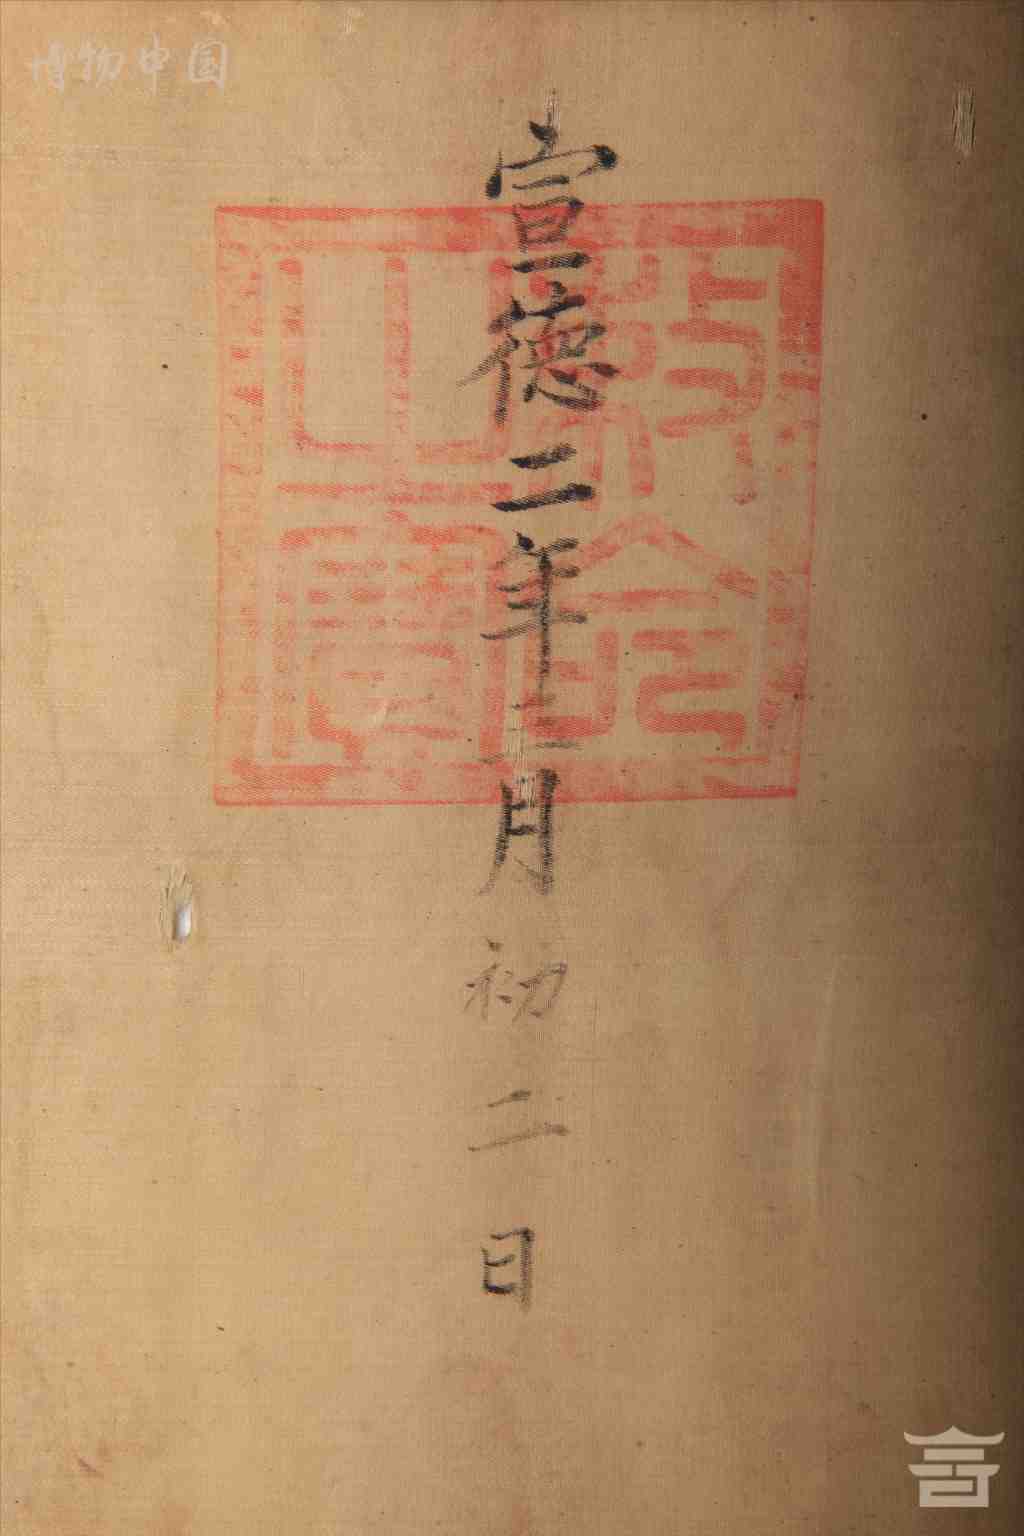 博物中国
宣德二年三月初二日
敕命之寶